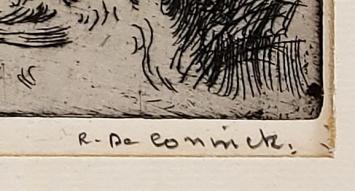 R. De Coninck.